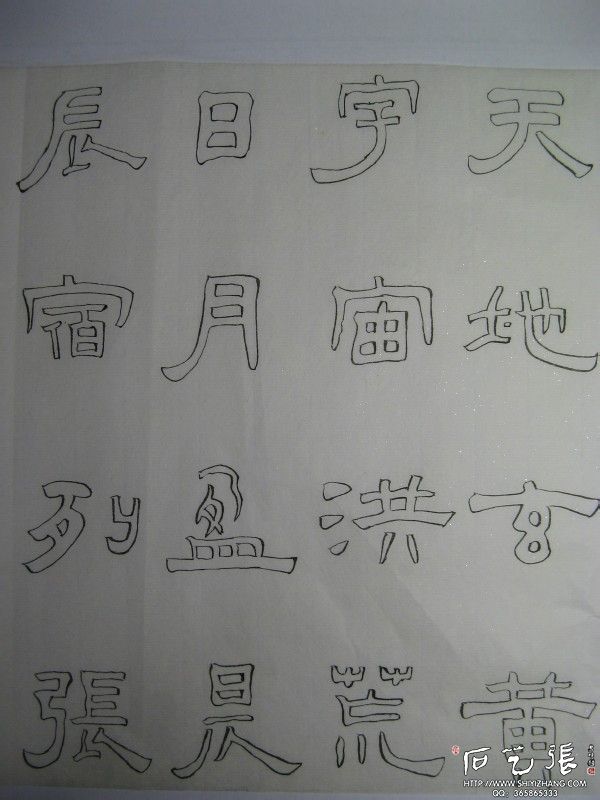 天地玄黃
宇宙洪荒
日月盈昃
辰宿列張
石艺張
HTTP://WWW.SHIYIZHANG.COM
QQ: 365865333